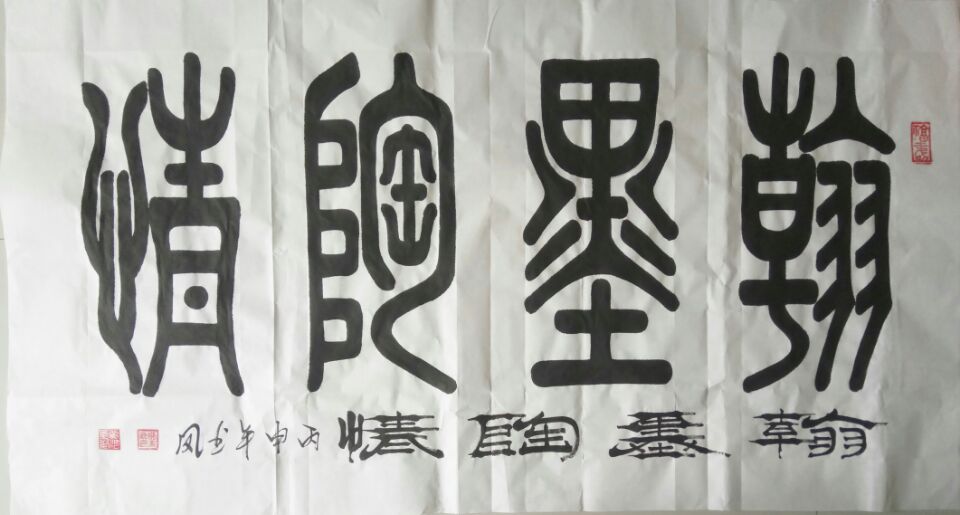 翰墨陶情
翰墨陶情 丙申年 玉凤